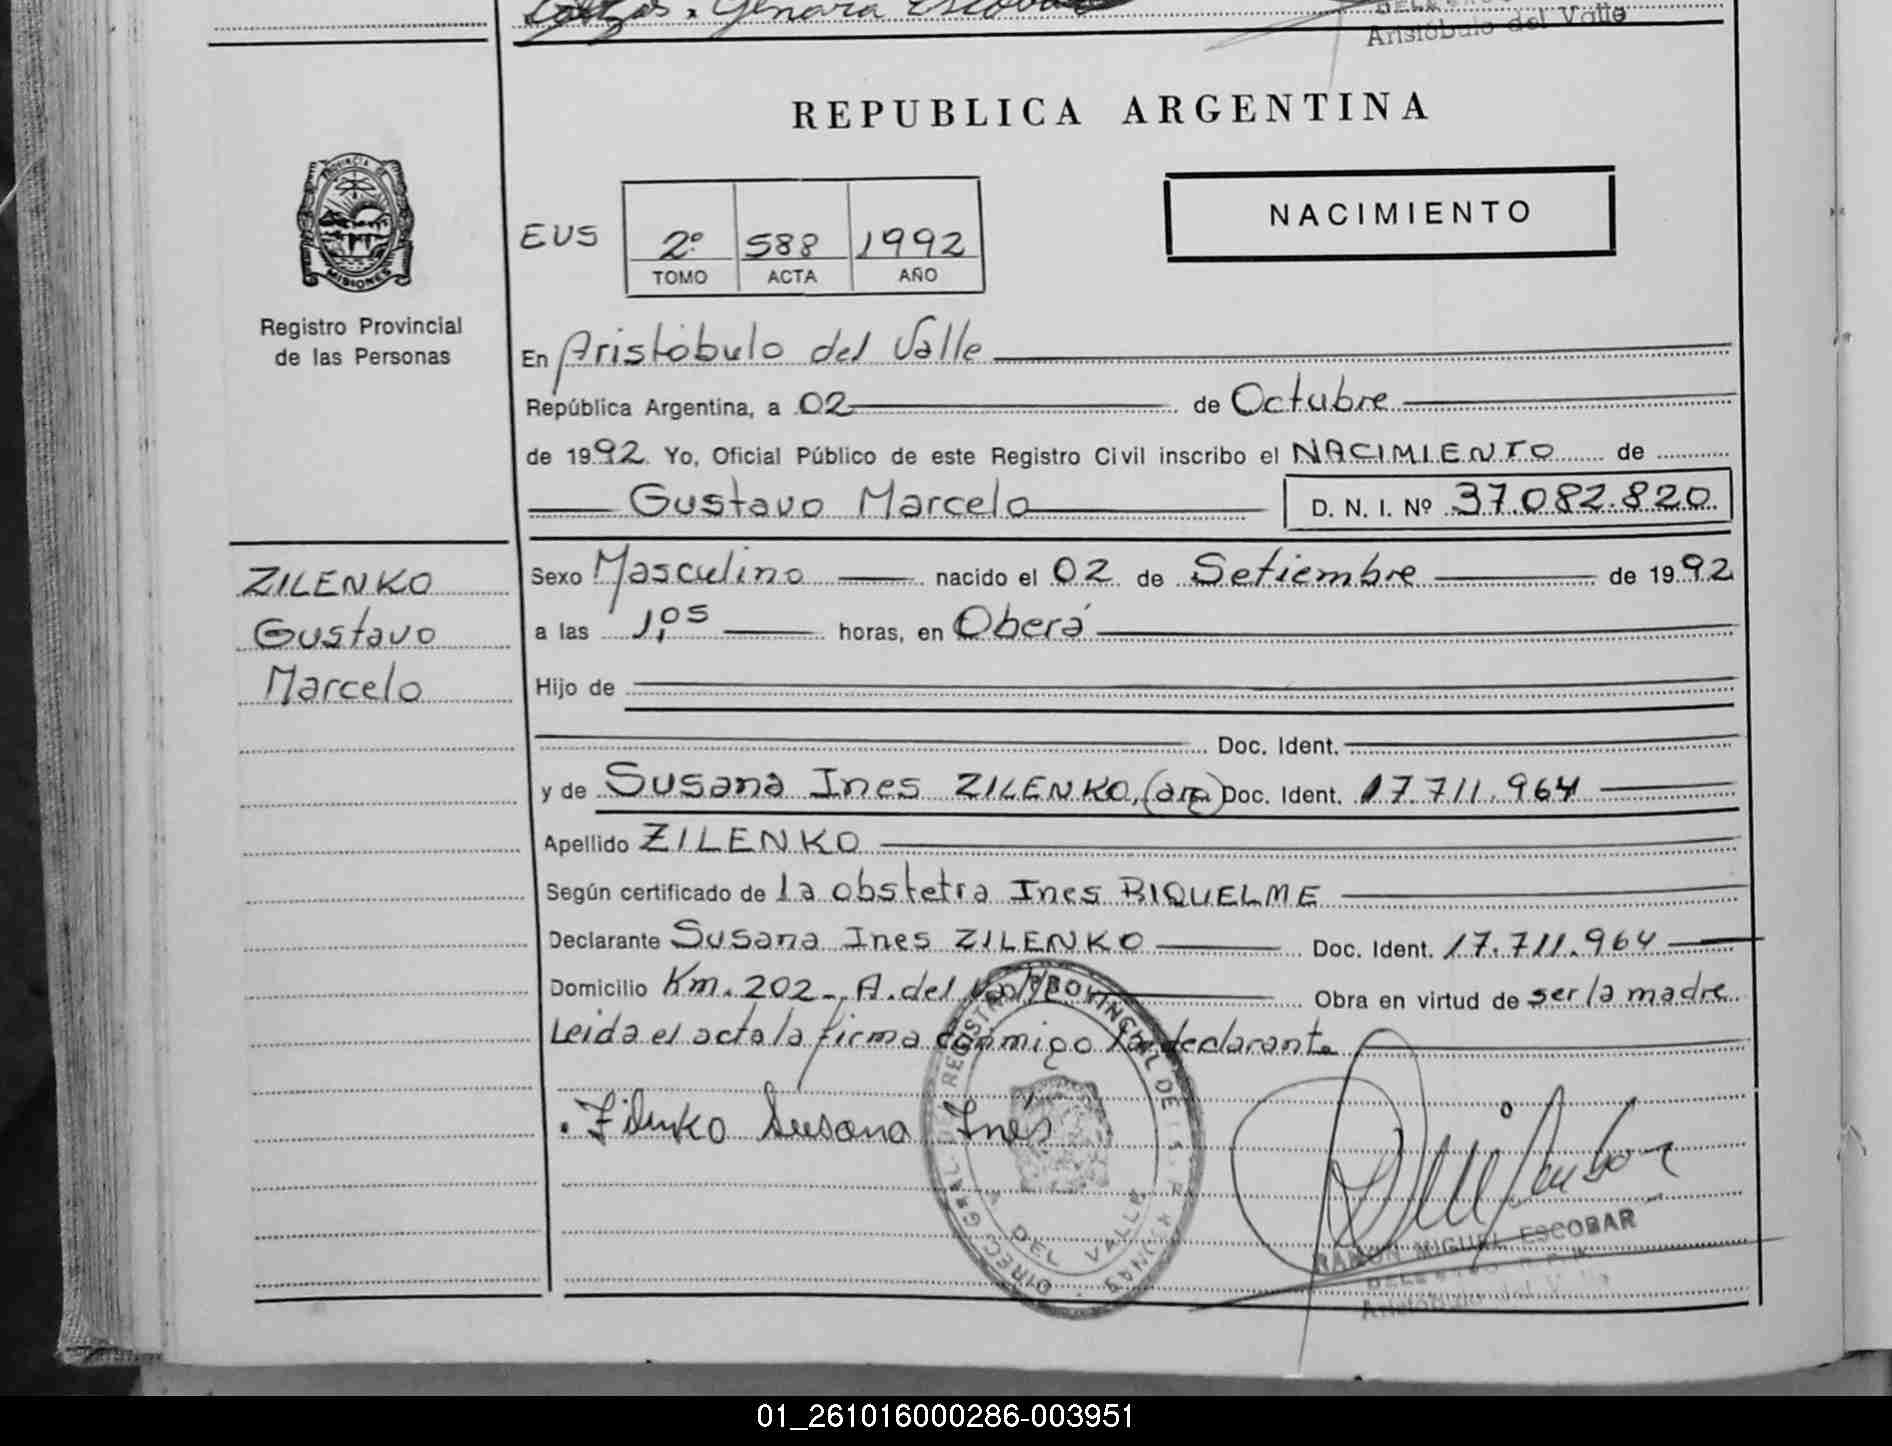 Genara Escobar
Aristóbulo del Valle
REPUBLICA ARGENTINA
PROVINCIA DE
MISIONES
Registro Provincial
de las Personas
NACIMIENTO
EUS 2º 588 1992
TOMO ACTA AÑO
En Aristóbulo del Valle
República Argentina, a 02 de Octubre
de 1992. Yo, Oficial Público de este Registro Civil inscribo el NACIMIENTO de
Gustavo Marcelo D. N. I. Nº 37.082.820
ZILENKO
Gustavo
Marcelo
Sexo Masculino nacido el 02 de Setiembre de 1992
a las 1,05 horas, en Oberá
Hijo de
Doc. Ident.
y de Susana Ines ZILENKO, (arg) Doc. Ident. 17.711.964
Apellido ZILENKO
Según certificado de la obstetra Ines RIQUELME
Declarante Susana Ines ZILENKO Doc. Ident. 17.711.964
Domicilio Km. 202 - A. del Valle Obra en virtud de ser la madre
Leida el acta la firma conmigo la declarante
Zilenko Susana Inés
DIRECC. GRAL. DE REGISTRO PROVINCIAL DE
DEL VALLE
RAMON MIGUEL ESCOBAR
Aristóbulo del Valle
01_261016000286-003951